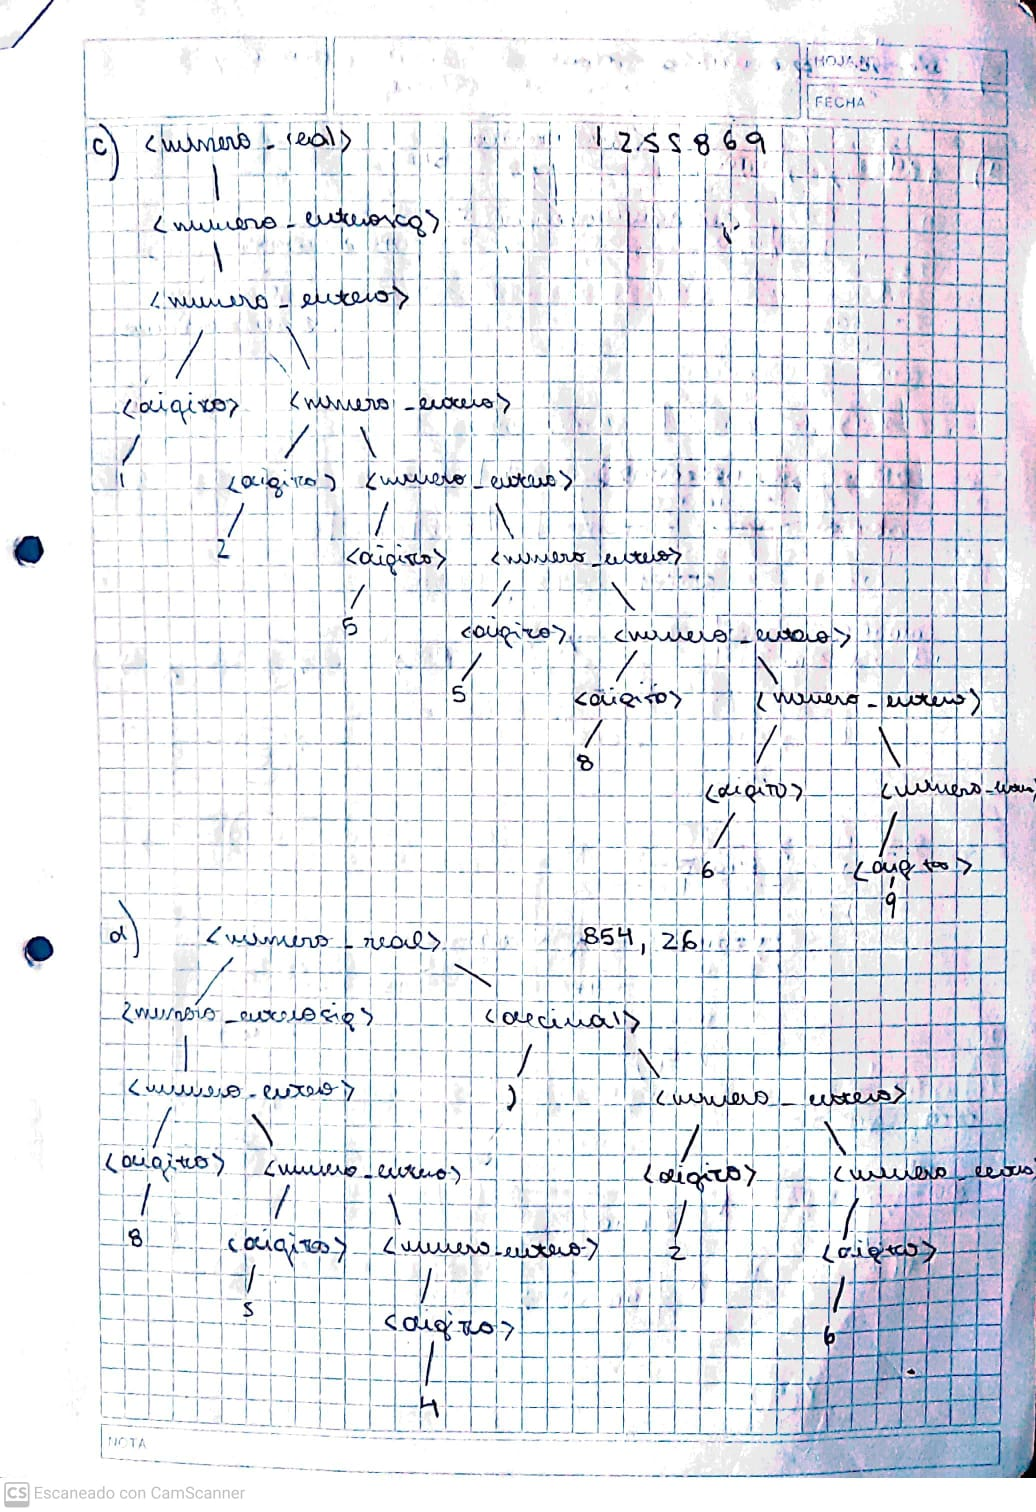 HOJA Nº
FECHA
c) <numero_real> 1255869
<numero_enterosig>
<numero_entero>
<digito> <numero_entero>
1 <digito> <numero_entero>
2 <digito> <numero_entero>
5 <digito> <numero_entero>
5 <digito> <numero_entero>
8 <digito> <numero_entero>
6 <digito>
9
d) <numero_real> 854,26
<numero_enterosig> <decimal>
<numero_entero> , <numero_entero>
<digito> <numero_entero> <digito> <numero_entero>
8 <digito> <numero_entero> 2 <digito>
5 <digito> 6
4
NOTA
CS Escaneado con CamScanner